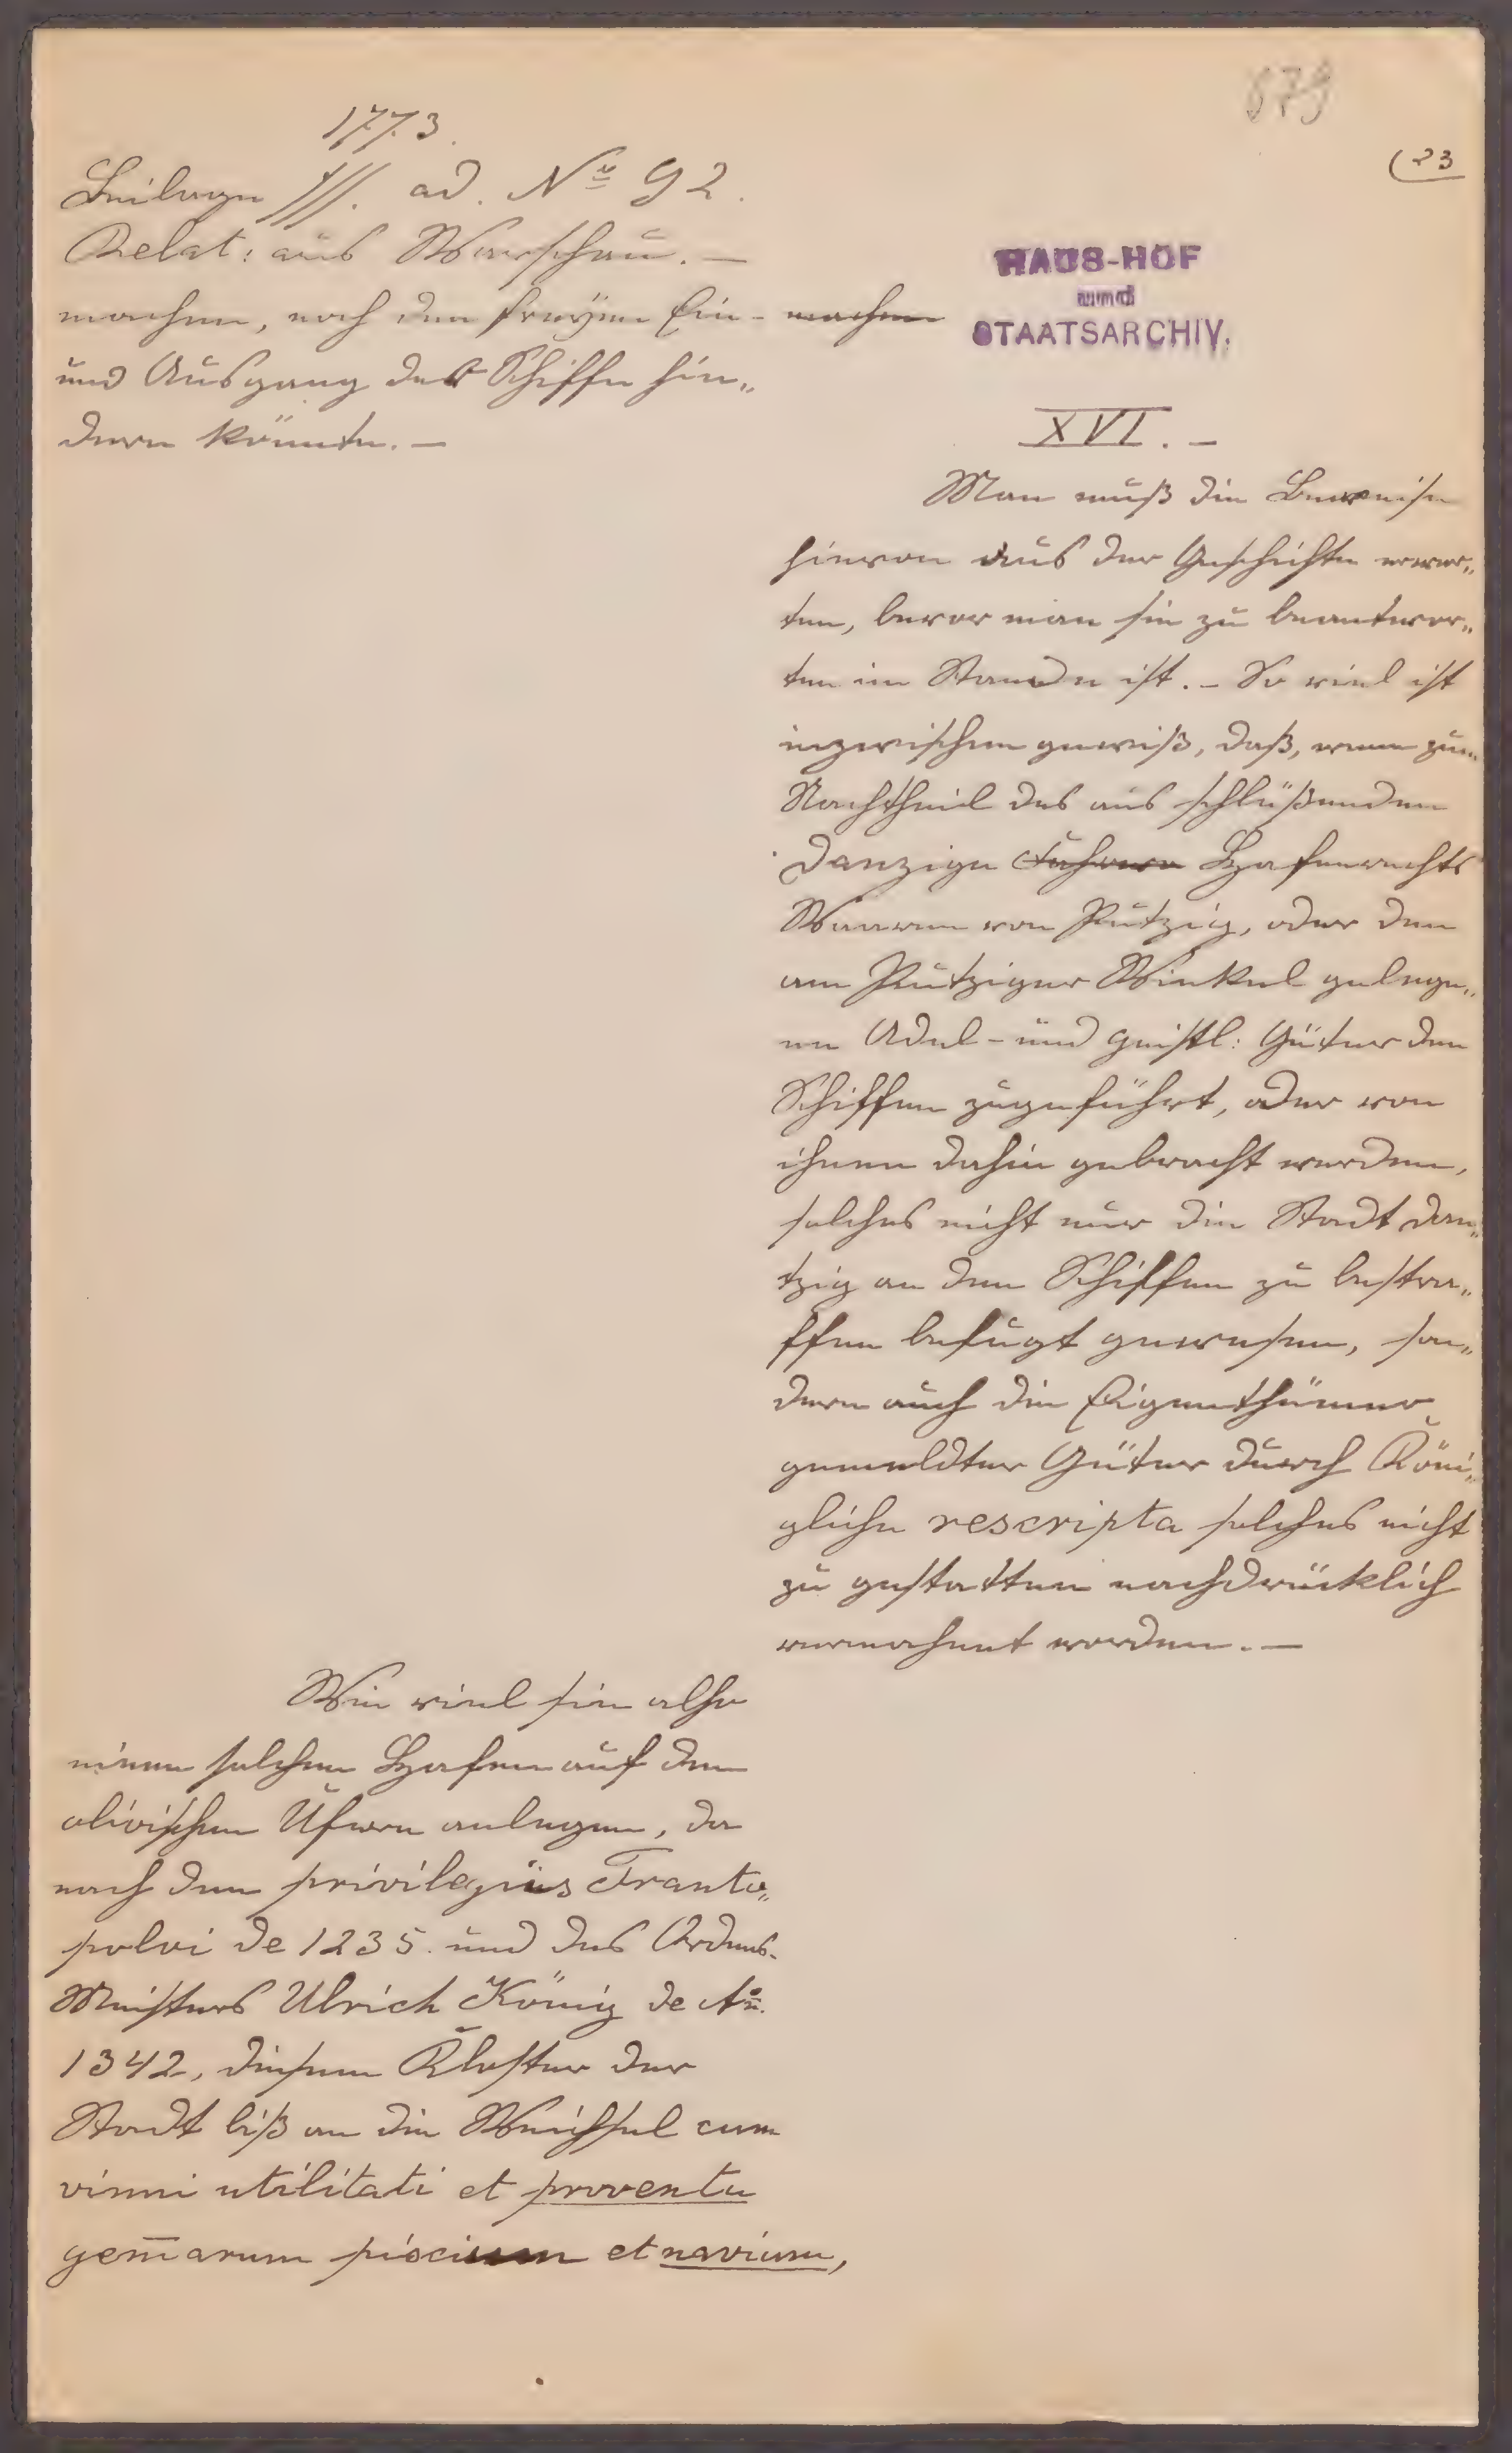 1773.
679
(23
Beilage fff. ad. No 92.
Relat: aus Warschau. —
machen, noch den freyen Ein- machen
und Ausgang der Schiffe hin„
dern könnte. —
HAUS-HOF
und
STAATSARCHIV.
XVI. —
Man muß die Beweise
hievon aus der Geschichte erwar„
ten, bevor man sie zu beantwor„
ten im Stande ist. – So viel ist
inzwischen gewiß, daß, wenn zum
Nachtheil des aus schlüßenden
Danziger Hafenrechts
Waaren von Putzig, oder den
am Putziger Winkel gelege„
nen Adel- und geistl: Güter den
Schiffen zugeführt, oder von
ihnen dahin gebracht werden,
solches nicht nur die Stadt Dan„
tzig an den Schiffen zu bestra„
ffen befugt gewesen, son„
dern auch die Eigenthümer
gemeldter Güter durch Köni„
gliche rescripta solches nicht
zu gestatten nachdrücklich
vermahnet worden. —
Wie viel sie also
einen solchen Hafen auf den
olivischen Ufern anlegen, da
nach den privilegiis Franto„
polvi de 1235. und des Ordens-
Meisters Ulrich König de Ao.
1342, diesem Kloster der
Stadt biß an die Weichsel cum
vinni utilitati et proventu
gem̄arum piscium et navium,